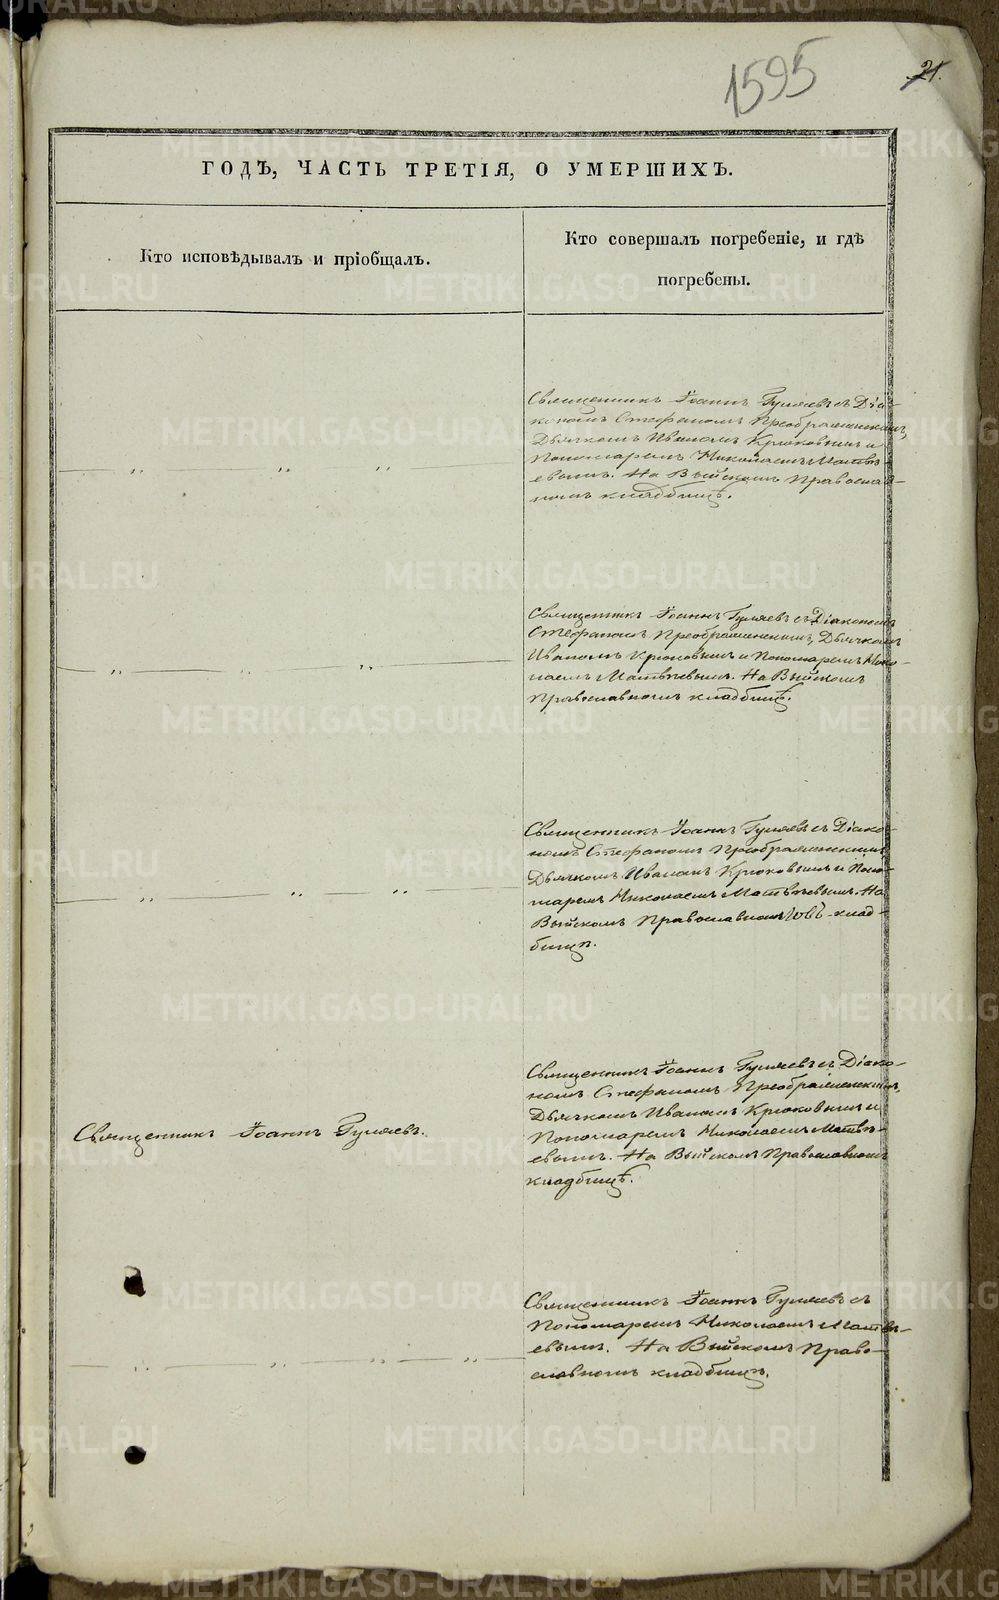 1595
21.
ГОДЪ, ЧАСТЬ ТРЕТІЯ, О УМЕРШИХЪ.
Кто исповѣдывалъ и пріобщалъ.
Кто совершалъ погребеніе, и гдѣ
погребены.
Священникъ Іоаннъ Гуляевъ съ Діа-
кономъ Стефаномъ Преображенскимъ,
Дьячкомъ Иваномъ Крюковымъ и
Пономаремъ Николаемъ Матвѣ-
евымъ. На Выйскомъ Православ-
номъ кладбищѣ.
Священникъ Іоаннъ Гуляевъ съ Діакономъ
Стефаномъ Преображенскимъ, Дьячкомъ
Иваномъ Крюковымъ и Пономаремъ Нико-
лаемъ Матвѣевымъ. На Выйскомъ
Православномъ кладбищѣ.
Священникъ Іоаннъ Гуляевъ съ Діако-
номъ Стефаномъ Преображенскимъ
Дьячкомъ Иваномъ Крюковымъ и Поно-
маремъ Николаемъ Матвѣевымъ. На
Выйскомъ Православномъ клад-
бищѣ.
Священникъ Іоаннъ Гуляевъ.
Священникъ Іоаннъ Гуляевъ съ Діако-
номъ Стефаномъ Преображенскимъ,
Дьячкомъ Иваномъ Крюковымъ и
Пономаремъ Николаемъ Матвѣ-
евымъ. На Выйскомъ Православномъ
кладбищѣ.
Священникъ Іоаннъ Гуляевъ съ
Пономаремъ Николаемъ Матвѣ-
евымъ. На Выйскомъ Право-
славномъ кладбищѣ.
METRIKI.GASO-URAL.RU